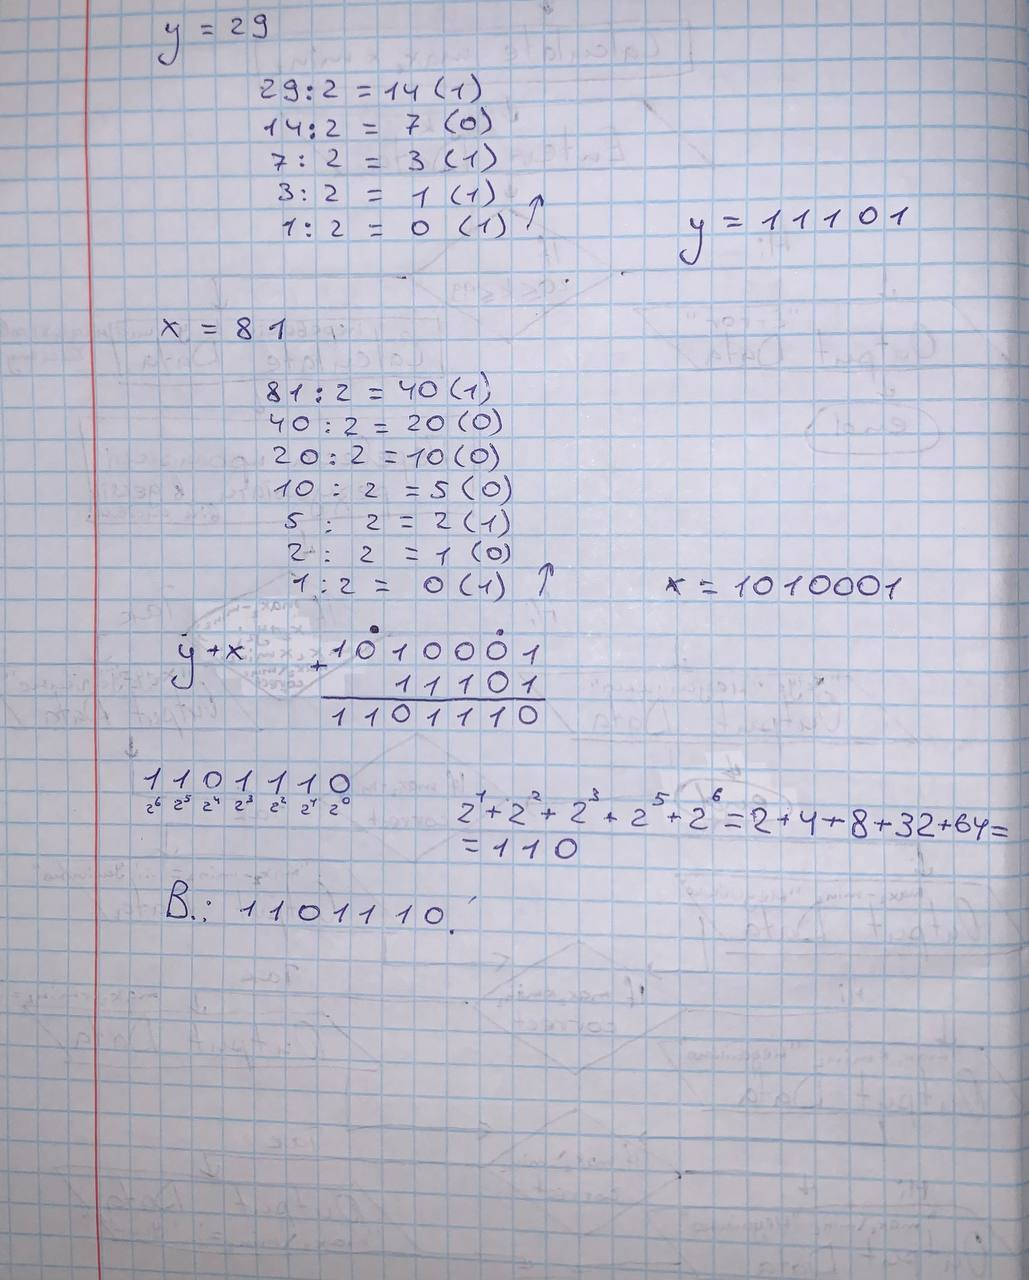 y = 29
29 : 2 = 14 (1)
14 : 2 = 7 (0)
7 : 2 = 3 (1)
3 : 2 = 1 (1)
1 : 2 = 0 (1) ↑
y = 11101
x = 81
81 : 2 = 40 (1)
40 : 2 = 20 (0)
20 : 2 = 10 (0)
10 : 2 = 5 (0)
5 : 2 = 2 (1)
2 : 2 = 1 (0)
1 : 2 = 0 (1) ↑
x = 1010001
y + x
1010001
+ 11101
1101110
↓
1101110
2⁶ 2⁵ 2⁴ 2³ 2² 2¹ 2⁰
2¹ + 2² + 2³ + 2⁵ + 2⁶ = 2 + 4 + 8 + 32 + 64 =
= 110
В.: 1101110.